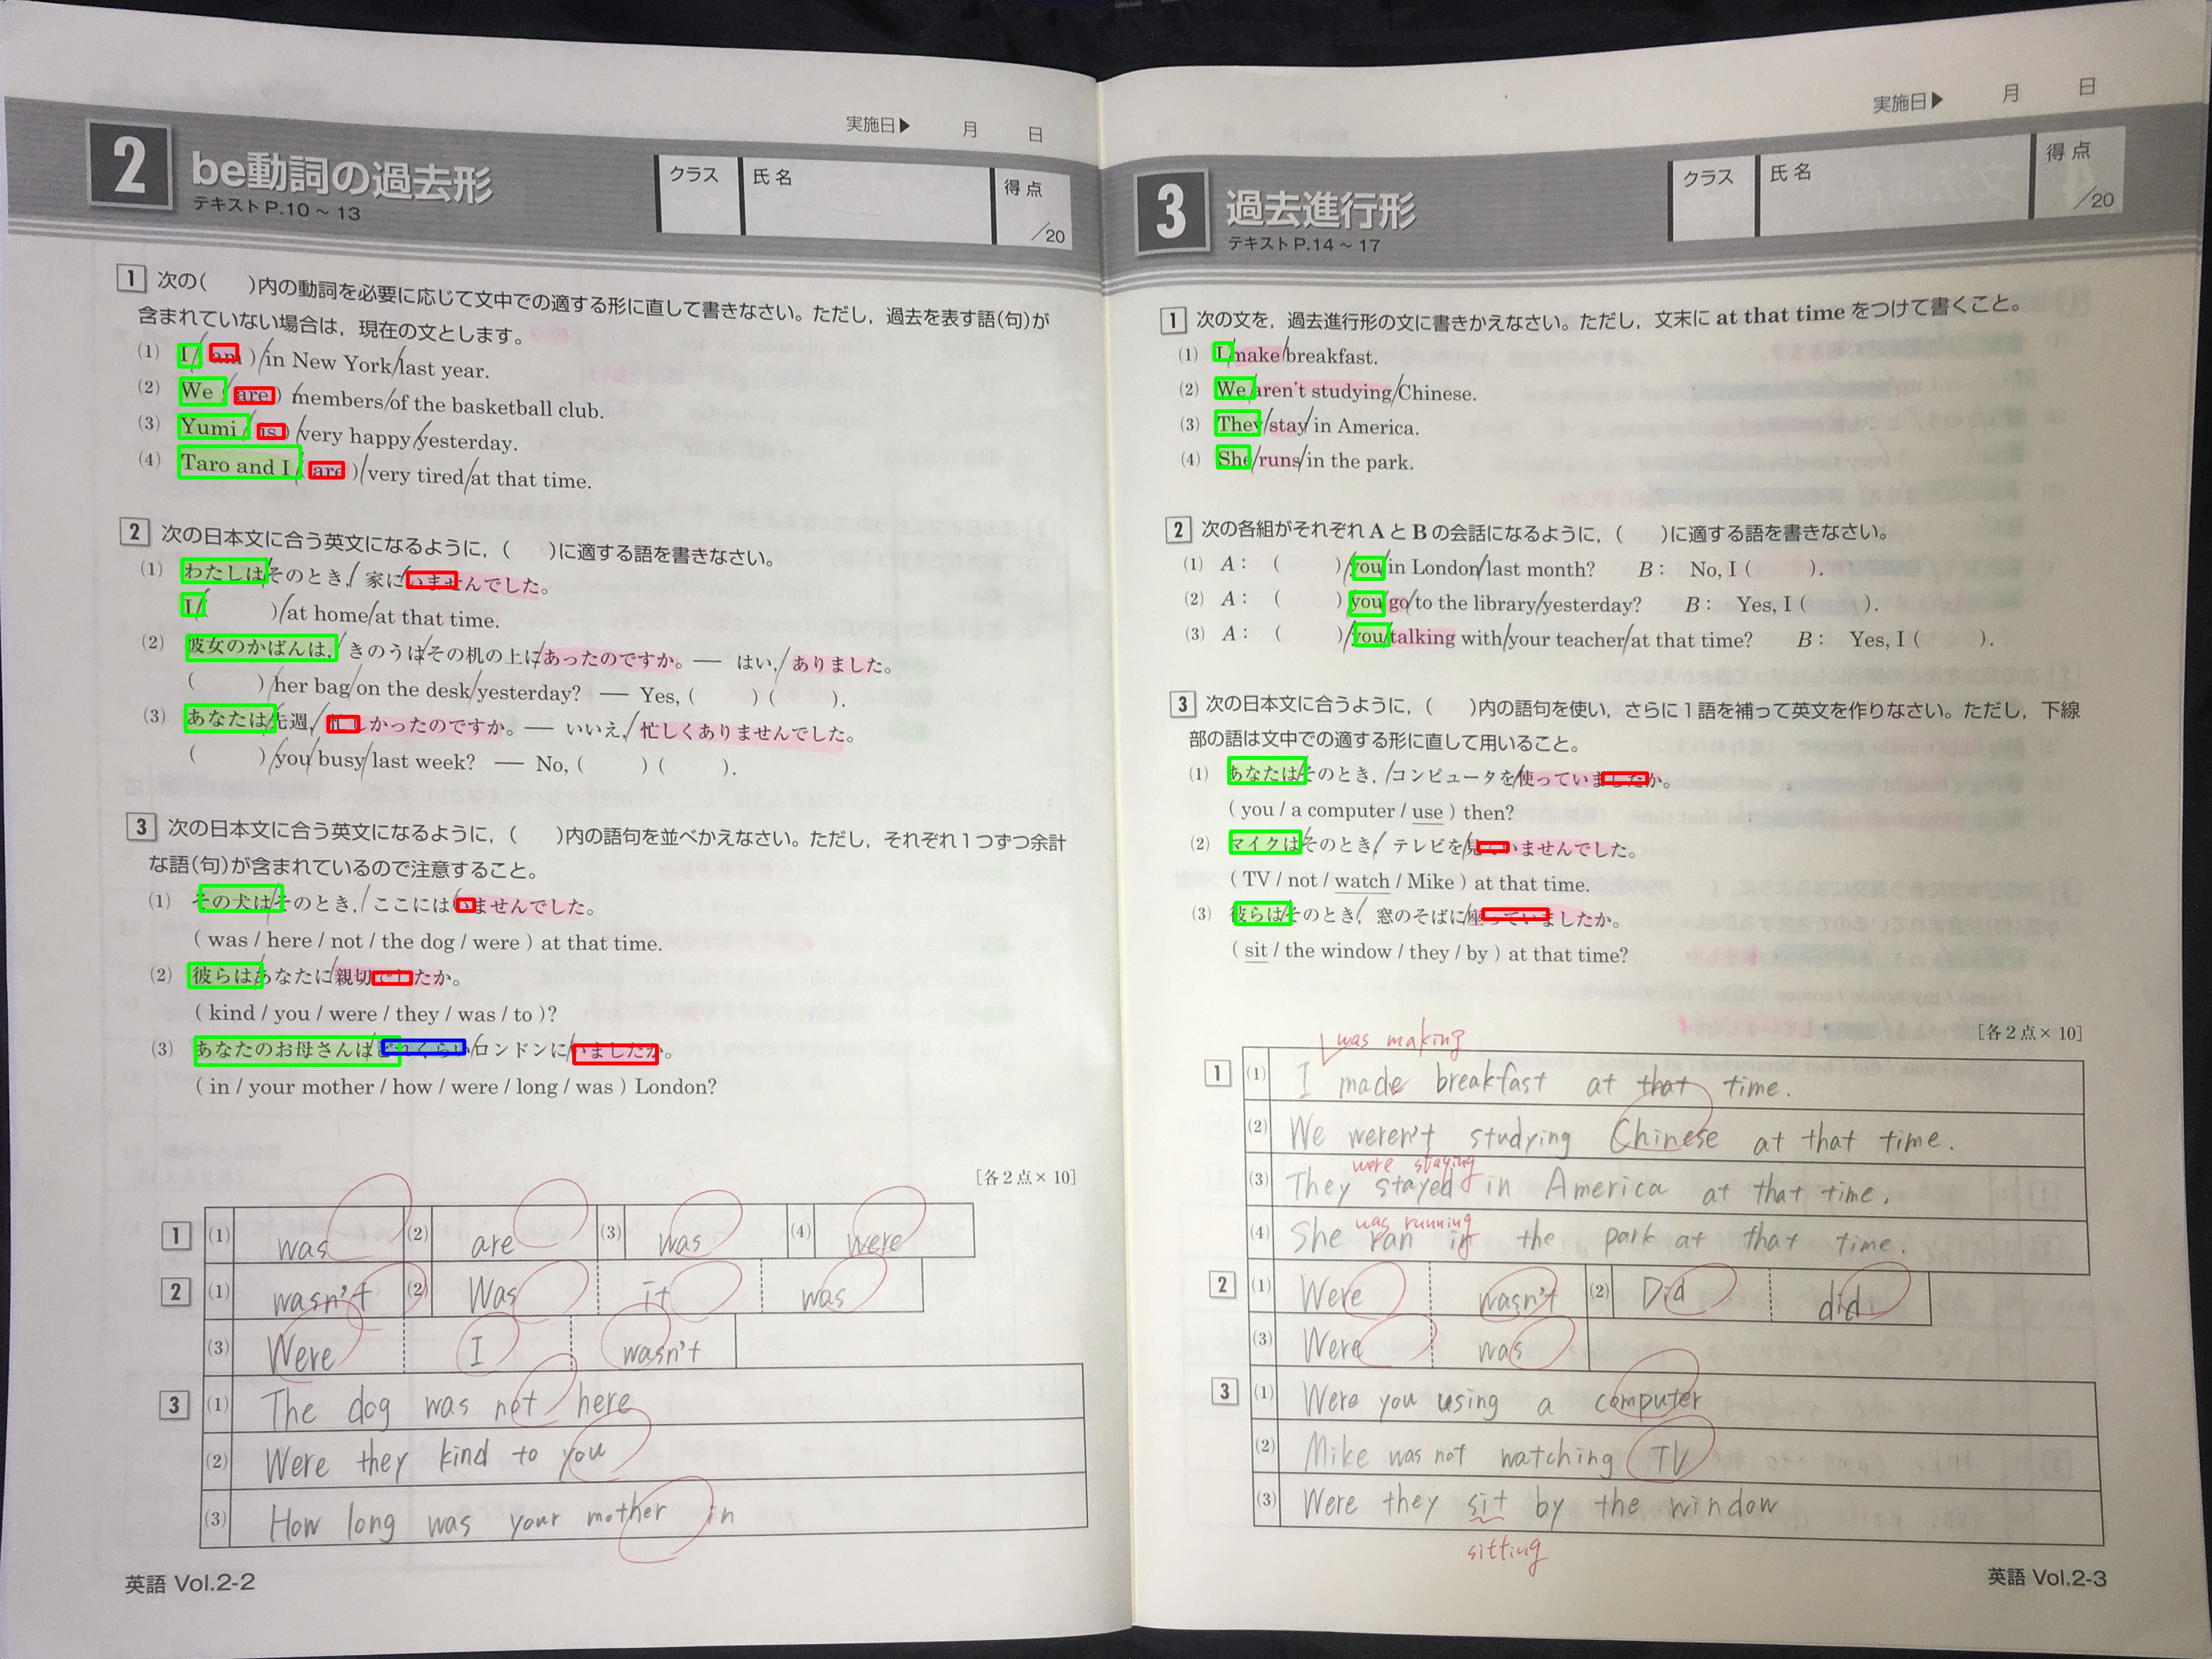 実施日▶ 月 日
2 be動詞の過去形
テキストP.10～13
クラス 氏名 得点 /20
1 次の( )内の動詞を必要に応じて文中での適する形に直して書きなさい。ただし，過去を表す語(句)が
含まれていない場合は，現在の文とします。
(1) I ( am ) in New York last year.
(2) We ( are ) members of the basketball club.
(3) Yumi ( is ) very happy yesterday.
(4) Taro and I ( are ) very tired at that time.
2 次の日本文に合う英文になるように，( )に適する語を書きなさい。
(1) わたしはそのとき，家にいませんでした。
I ( ) at home at that time.
(2) 彼女のかばんは，きのうはその机の上にあったのですか。— はい，ありました。
( ) her bag on the desk yesterday? — Yes, ( ) ( ).
(3) あなたは先週，忙しかったのですか。— いいえ，忙しくありませんでした。
( ) you busy last week? — No, ( ) ( ).
3 次の日本文に合う英文になるように，( )内の語句を並べかえなさい。ただし，それぞれ1つずつ余計
な語(句)が含まれているので注意すること。
(1) その犬はそのとき，ここにはいませんでした。
( was / here / not / the dog / were ) at that time.
(2) 彼らはあなたに親切でしたか。
( kind / you / were / they / was / to )?
(3) あなたのお母さんはどれくらいロンドンにいましたか。
( in / your mother / how / were / long / was ) London?
[各2点×10]
1 (1) was (2) are (3) was (4) were
2 (1) wasn't (2) Was it was
(3) Were I wasn't
3 (1) The dog was not here
(2) Were they kind to you
(3) How long was your mother in
英語 Vol.2-2
実施日▶ 月 日
3 過去進行形
テキストP.14～17
クラス 氏名 得点 /20
1 次の文を，過去進行形の文に書きかえなさい。ただし，文末に at that time をつけて書くこと。
(1) I make breakfast.
(2) We aren't studying Chinese.
(3) They stay in America.
(4) She runs in the park.
2 次の各組がそれぞれAとBの会話になるように，( )に適する語を書きなさい。
(1) A: ( ) you in London last month? B: No, I ( ).
(2) A: ( ) you go to the library yesterday? B: Yes, I ( ).
(3) A: ( ) you talking with your teacher at that time? B: Yes, I ( ).
3 次の日本文に合うように，( )内の語句を使い，さらに1語を補って英文を作りなさい。ただし，下線
部の語は文中での適する形に直して用いること。
(1) あなたはそのとき，コンピュータを使っていましたか。
( you / a computer / use ) then?
(2) マイクはそのとき，テレビを見ていませんでした。
( TV / not / watch / Mike ) at that time.
(3) 彼らはそのとき，窓のそばに座っていましたか。
( sit / the window / they / by ) at that time?
[各2点×10]
was making
1 (1) I made breakfast at that time.
(2) We weren't studying Chinese at that time.
were staying
(3) They stayed in America at that time.
was running
(4) She ran in the park at that time.
2 (1) Were wasn't (2) Did did
(3) Were was
3 (1) Were you using a computer
(2) Mike was not watching TV
(3) Were they sit by the window
sitting
英語 Vol.2-3